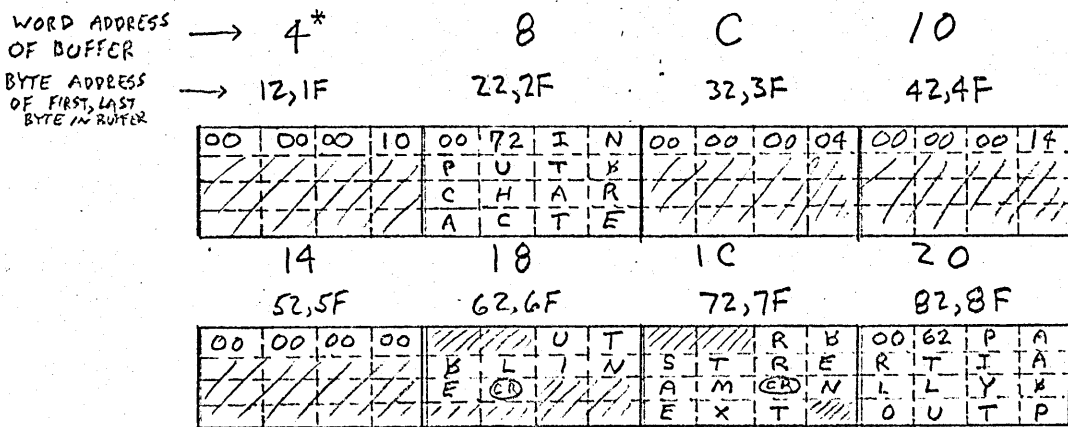 WORD ADDRESS
OF BUFFER → 4* 8 C 10
BYTE ADDRESS
OF FIRST, LAST
BYTE IN BUFFER → 12,1F 22,2F 32,3F 42,4F
00 00 00 10 00 72 I N 00 00 00 04 00 00 00 14
P U T ƀ
C H A R
A C T E
14 18 1C 20
52,5F 62,6F 72,7F 82,8F
00 00 00 00 U T R ƀ 00 62 P A
ƀ L I N S T R E R T I A
E CR A M CR N L L Y ƀ
E X T O U T P